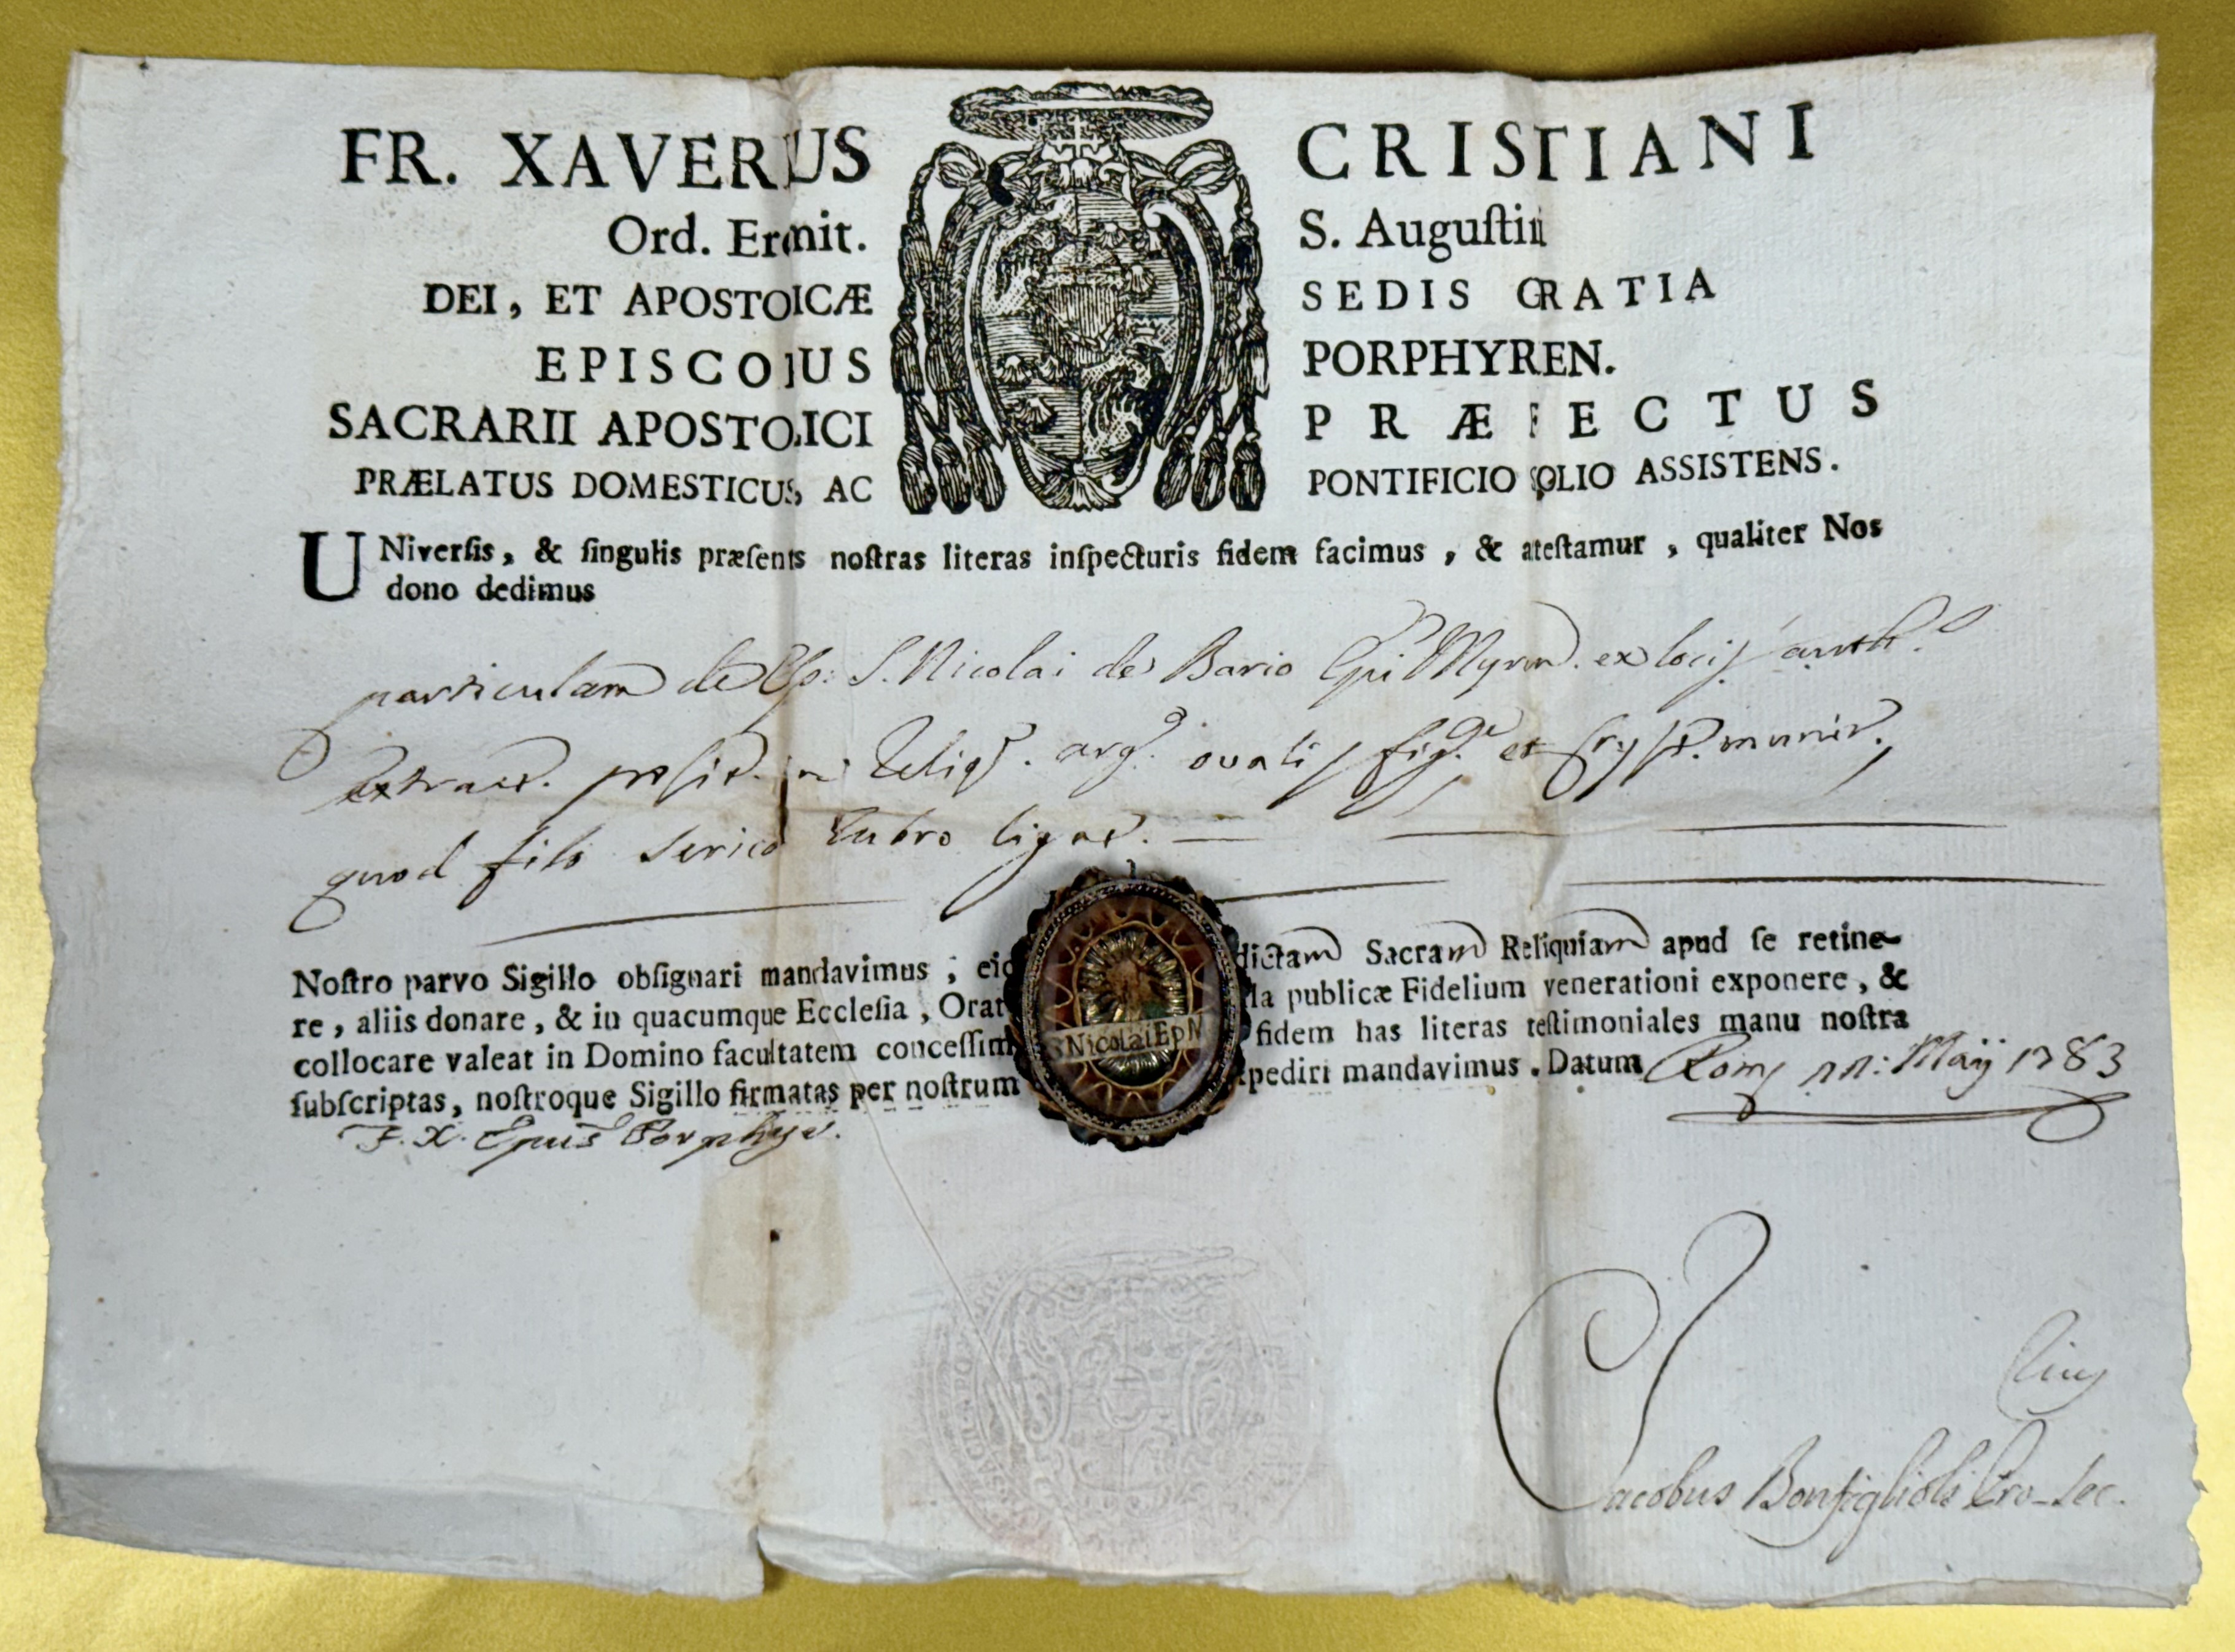 FR. XAVERIUS CRISTIANI
Ord. Ermit. S. Auguſtini
DEI, ET APOSTOICÆ SEDIS GRATIA
EPISCOUS PORPHYREN.
SACRARII APOSTOICI PRÆFECTUS
PRÆLATUS DOMESTICUS, AC PONTIFICIO SOLIO ASSISTENS.
UNiverſis, & ſingulis præſents noſtras literas inſpecturis fidem facimus, & ateſtamur, qualiter Nos
dono dedimus
particulam de S. Nicolai de Bario Epi Myren. ex locis auth.
extract. posit. in Reliq. arg. ovalis fig. et cryst. munit.
quod filo serico rubro ligat.
Noſtro parvo Sigillo obſignari mandavimus; eid dictam Sacram Reliquiam apud ſe retine-
re, aliis donare, & in quacumque Eccleſia, Orat la publicæ Fidelium venerationi exponere, &
collocare valeat in Domino facultatem conceſſim fidem has literas teſtimoniales manu noſtra
ſubſcriptas, noſtroque Sigillo firmatas per noſtrum xpediri mandavimus. Datum Romæ 11: Maij 1783
F. X. Epus Porphyr.
S Nicolai Ep M
Jacobus Bonfiglioli Pro-Sec.